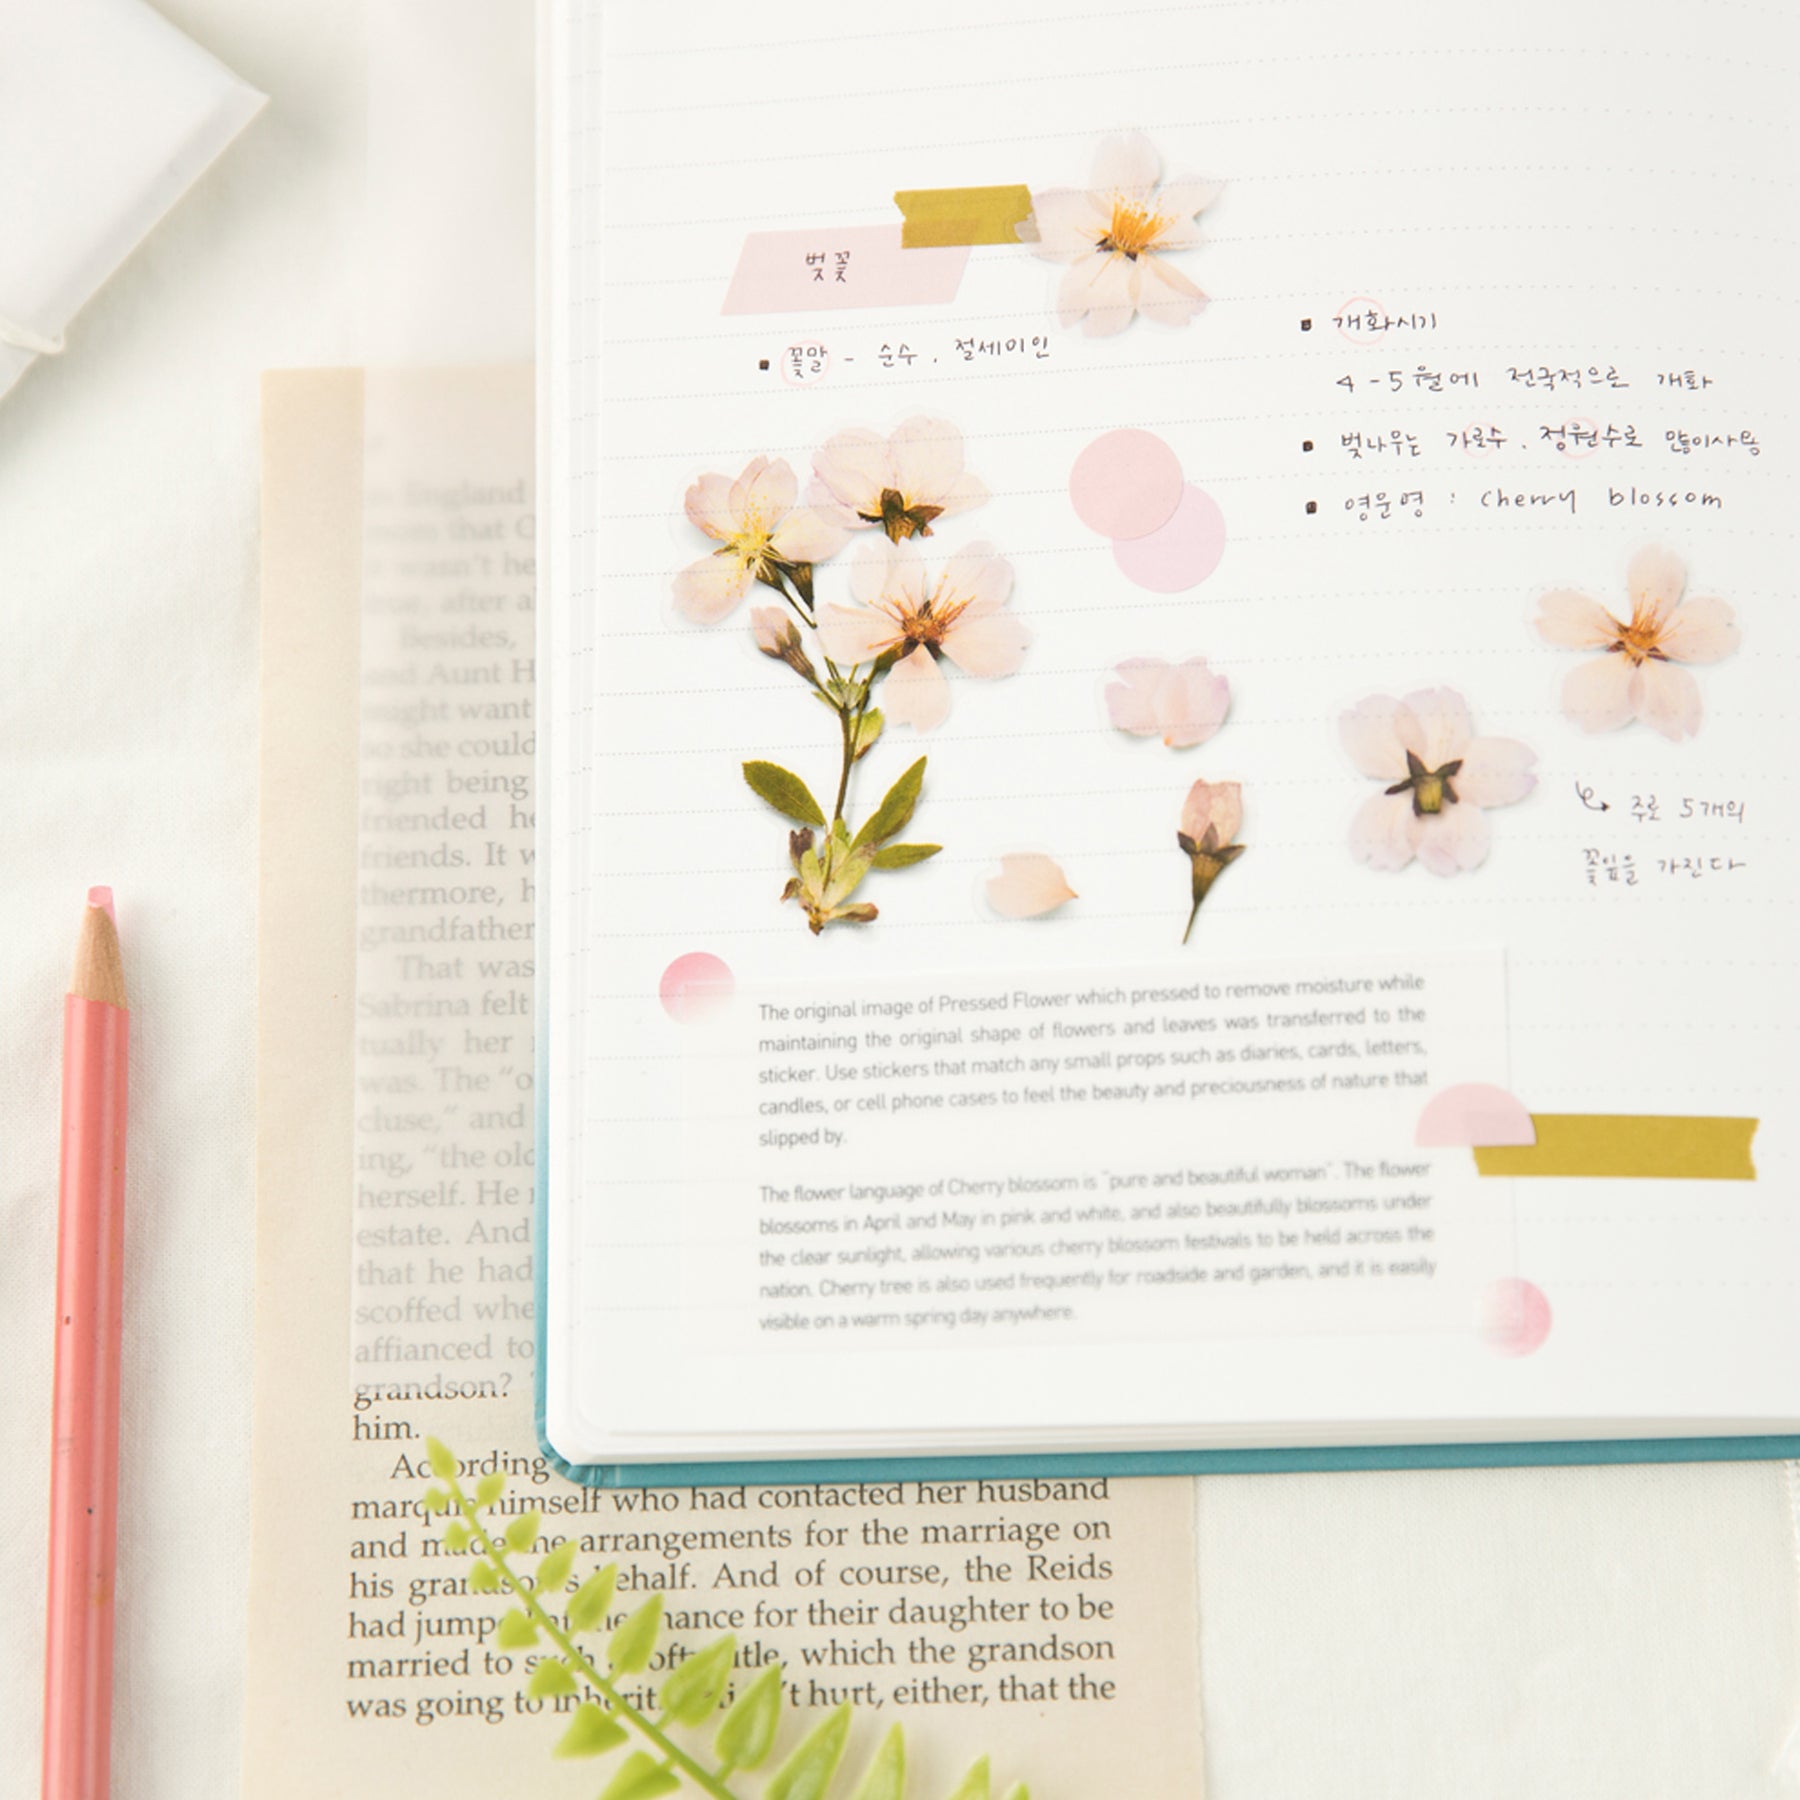 벚꽃
꽃말 - 순수, 절세미인
개화시기
4-5월에 전국적으로 개화
벚나무는 가로수, 정원수로 많이사용
영문명 : cherry blossom
주로 5개의
꽃잎을 가진다
The original image of Pressed Flower which pressed to remove moisture while
maintaining the original shape of flowers and leaves was transferred to the
sticker. Use stickers that match any small props such as diaries, cards, letters,
candles, or cell phone cases to feel the beauty and preciousness of nature that
slipped by.
The flower language of Cherry blossom is "pure and beautiful woman". The flower
blossoms in April and May in pink and white, and also beautifully blossoms under
the clear sunlight, allowing various cherry blossom festivals to be held across the
nation. Cherry tree is also used frequently for roadside and garden, and it is easily
visible on a warm spring day anywhere.
England
that
wasn't he
after a
Besides,
and Aunt H
might want
so she could
right being
friended he
friends. It w
thermore, h
grandfather
That was
Sabrina felt
tually her
was. The "o
cluse," and
ing, "the old
herself. He
estate. And
that he had
scoffed whe
affianced to
grandson?
him.
According
marquis himself who had contacted her husband
and made the arrangements for the marriage on
his grandson's behalf. And of course, the Reids
had jumped at the chance for their daughter to be
married to such a lofty title, which the grandson
was going to inherit. 't hurt, either, that the